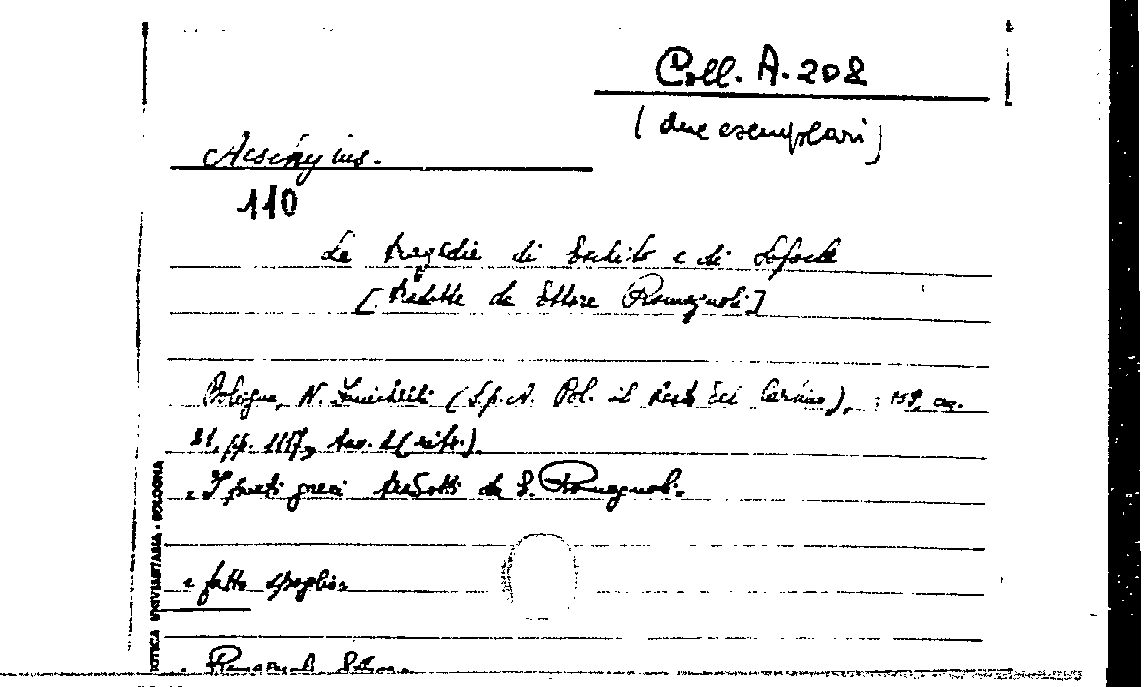 Coll. A. 208
(due esemplari)
Aeschylus.
110
Le tragedie di Eschilo e di Sofocle
[tradotte da Ettore Romagnoli]
Bologna, N. Zanichelli (
21, pp. tav.
"I poeti greci tradotti da E. Romagnoli.
"fatto spoglio"
Romagnoli Ettore
UNIVERSITARIA - BOLOGNA